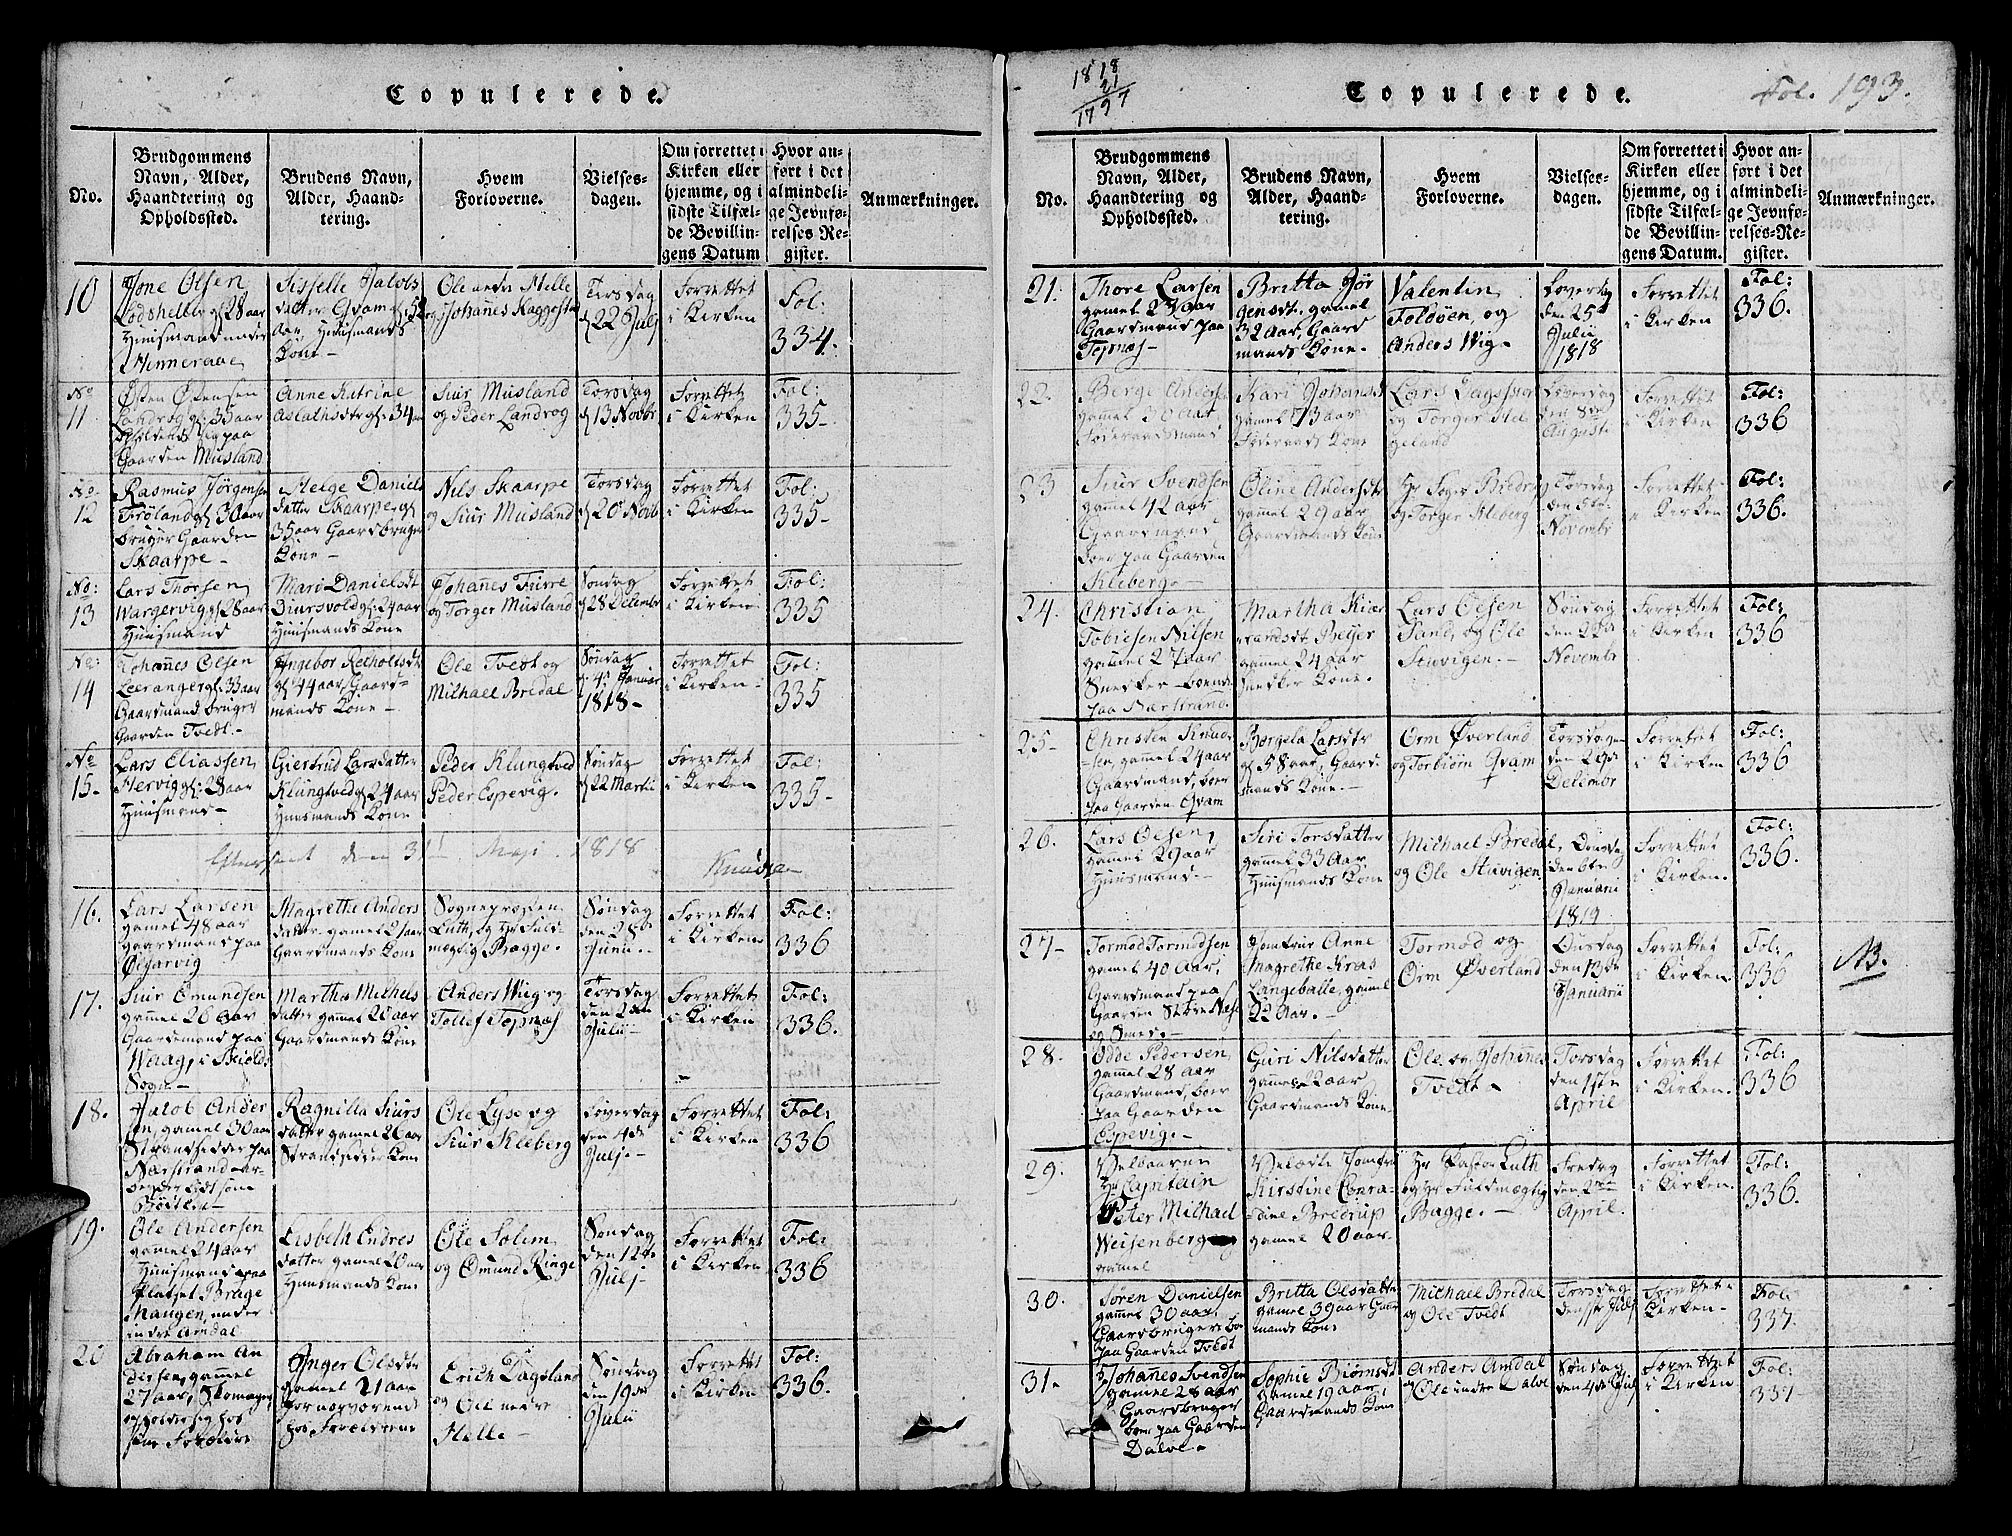 Copulerede.
No.
Brudgommens
Navn, Alder,
Haandtering og
Opholdssted.
Brudens Navn,
Alder, Haand-
tering.
Hvem
Forloverne.
Vielses-
dagen.
Om forrettet i
Kirken eller
hjemme, og i
sidste Tilfæl-
de Bevillin-
gens Datum
Hvor an-
ført i det
almindeli-
ge Jevnfø-
relses-Re-
gister.
Anmærkninger.
10
Jone Olsen
Lodshelle gl: 28 aar
Huusmand under
Vinneraae
Sisselle Jacobs
datter Qvam gl: 52
aar, Huusmands
Kone-
Ole nedre Helle
og Johanes Kaggestad
Tirsdag
d 22 Julj
Forrettet
i Kirken
Fol:
334.
No
11
Østen Østensen
Landrog gl: 35 aar
opholdende sig paa
Gaarden Musland
Anne Katrine
Aslaksdtr gl: 34 aar
Siur Musland
og Peder Landrog
Torsdag
d 13 Novbr
Forrettet
i Kirken
Fol:
335-
No
12
Rasmus Jørgensen
Frøland gl: 30 aar
bruger Gaarden
Skaarpe-
Helge Daniels
datter Skaarpe gl:
35 aar Gaardbruger
Kone-
Nils Skaarpe
og Siur Musland
Torsdag
d 20 Novb
Forrettet
i Kirken
Fol:
335-
No:
13
Lars Thorsen
Wargervig gl: 28 aar
Huusmand
Mari Danielsdt
Diursvold gl: 24 aar
Huusmands Kone
Johanes Fiirre
og Torger Musland
Søndag
d 28 Decembr
Forrettet
i Kirken
Fol:
335
No:
14
Johanes Olsen
Leeranger gl: 33 aar
Gaardmand bruger
Gaarden Tvedt.-
Ingebor
gl 44 aar, Gaard-
mands Kone-
Ole Tvedt og
Michael Bredal
Søndag
d 4de Januar
1818-
Forrettet
i Kirken
Fol:
335
No
15-
Lars Eliassen
Hervig gl: 28 aar
Huusmand-
Giertrud Larsdatter
Klungtved gl: 24 aar
Huusmands Kone
Peder Klungtved
Peder Espevig.
Søndag
d 22 Martii
Forrettet
i Kirken
Fol:
335-
Efterseet den 31 Maji 1818
16.
Lars Larsen
gamel 48 aar
Gaardmand paa
Magrethe Anders
datter gamel 27 aar
Gaardmands Kone
Sognepræsten
Luth, og Hr Fuld-
mægtig Bagge.
Søndag
den 28de
Junii.-
Forrettet
i Kirken
Fol:
336
17.
Siur Omundsen
gamel 26 aar
Gaardmand paa
Waag, i Skiolds
Sogn-
Martha Michels
datter gamel 20 aar
Gaardmands Kone
Anders Wiig og
Tollef Topnæs
Torsdag
den 2den
Julii-
Forrettet
i Kirken
Fol:
336.
18.
Jacob Ander
sen, gamel 30 aar
Strandsidder paa
Nærstrand ar-
beyder lidt som
Bødtker-
Ragnilla Siurs
datter gamel 26 aar
Strandsidder Kone
Ole Lyse og
Siur Kleberg
Løverdag
den 4de
Julj.-
Forrettet
i Kirken
Fol:
336
19.
Ole Andersen
gamel 24 aar
Huusmand paa
Pladset Brage
haugen, under
indre Amdal
Lisbeth Endres
datter gamel 20 aar
Huusmands Kone
Ole Solem
og Omund Ringe
Søndag
den 12te
Julj-
Forrettet
i Kirken
Fol:
336
20
Abraham An
dersen, gammel
27 aar, Skomager,
opholder sig hos
sine Forældre
Inger Olsdtr
gamel 21 aar
fornærværende
hos Forældrene
Erich Dagsland
og Ole nedre
Helle
Søndag
den 19de
Julii
Forrettet
i Kirken
Fol:
336.
1818
21
1797
Copulerede.
Fol. 193.
No.
Brudgommens
Navn, Alder,
Haandtering og
Opholdssted.
Brudens Navn,
Alder, Haand-
tering.
Hvem
Forloverne.
Vielses-
dagen.
Om forrettet i
Kirken eller
hjemme, og i
sidste Tilfæl-
de Bevillin-
gens Datum.
Hvor an-
ført i det
almindeli-
ge Jevnfø-
relses-Re-
gister.
Anmærkninger.
21.
Thore Larsen
gamel 23 aar
Gaardmand paa
Topnæs-
Britta Jør
gensdt. gamel
32 aar, Gaard
mands Kone.
Valentin
Foldøen, og
Anders Wig-
Løverdag
den 25de
Julii
1818
Forrettet
i Kirken
Fol:
336.
22.
Berge Anders
gamel 70 aar
Føderaadsmand
Kari Johansdt
gamel 73 aar
Føderaads Kone
Lars Dagsson
og Torger Hel
geland
Løverdag
den 8de
Augusti
Forrettet
i Kirken
Fol:
336
23
Siur Svendsen
gamel 42 aar
Gaardmand
boer paa Gaarden
Kleberg.-
Oline Andersdtr
gamel 29 aar
Gaardmands Kone
Hr Soger Bredrup
og Torger Kleberg
Torsdag
den 5te
Novembr
Forrettet
i Kirken
Fol:
336.
24.
Christian
Tobiesen Nilsen
gamel 27 aar
Snedker boende
paa Nærstrand.
Martha Kier
Beyer
gamel 24 aar
Snedker Kone.
Lars Olsen
Sand, og Ole
Stuvigen.-
Søndag
den 22de
Novembr
Forrettet
i Kirken
Fol:
336
25-
Christen Knud-
sen, gammel 24 aar
Gaardmand, boer
paa Gaarden Qvam
Borgela Larsdtr
gl 58 aar, Gaard
mands Kone.-
Orm Øverland
og Torbiørn Qvam
Torsdagen
den 29de
Decembr
Forrettet
i Kirken
Fol:
336
26.
Lars Olsen,
gamel 29 aar
Huusmand.-
Siri Torsdatter
gammel 33 aar
Huusmands Kone
Michael Bredal,
og Ole Stuvigen
Onsdag
den 6te
Januari
1819
Forrettet
i Kirken.
Fol:
336.
27-
Tormod Tormodsen
gamel 40 aar,
Gaardmand paa
Gaarden Store Næss
og Omes.-
Jomfrue Anne
Magrethe Kras
Langeballe, gamel
22 aar.-
Tormod og
Orm Øverland
Onsdag
den 13de
Januarii
Forrettet
i Kirken.
Fol:
336
NB.
28.
Odde Pedersen,
gamel 28 aar
Gaardmand, boer
paa Gaarden
Espevig.-
Guri Nilsdatter
gammel 22 aar
Gaardmands Kone
Ole og Johannes
Tvedt-
Torsdag
den 1ste
April
Forrettet
i Kirken.
Fol:
336
29.
Velbaarne
Hr Capitain
Peter Michael
Weisenberg
gamel
Velædle Jomfru
Kirstine Conra-
dine Bredrup
gamel 20 aar.
Hr Pastor Luth
og Hr Fuldmægtig
Bagge.-
Fredag
den 2den
April.
Forrettet
i Kirken.
Fol:
336.
30.
Søren Danielsen
gammel 30 aar,
Gaardbruger boer
paa Gaarden Tvedt
Britta Olsdatter
gamel 39 aar Gaard
mands Kone
Michael Bredal
og Ole Tvedt
Torsdag
Forrettet i
Kirken-
Fol:
337.
31-
Johannes Svendsen
gamel 28 aar
Gaardbruger
boer paa Gaarden
Dalve-
Sophie Biørnsdt
gamel 19 aar,
Gaardmands Kone
Anders Amdal
og Ole indre Dalve
Søndag
den 4de Julj
Forrettet
i Kirken
Fol:
337-